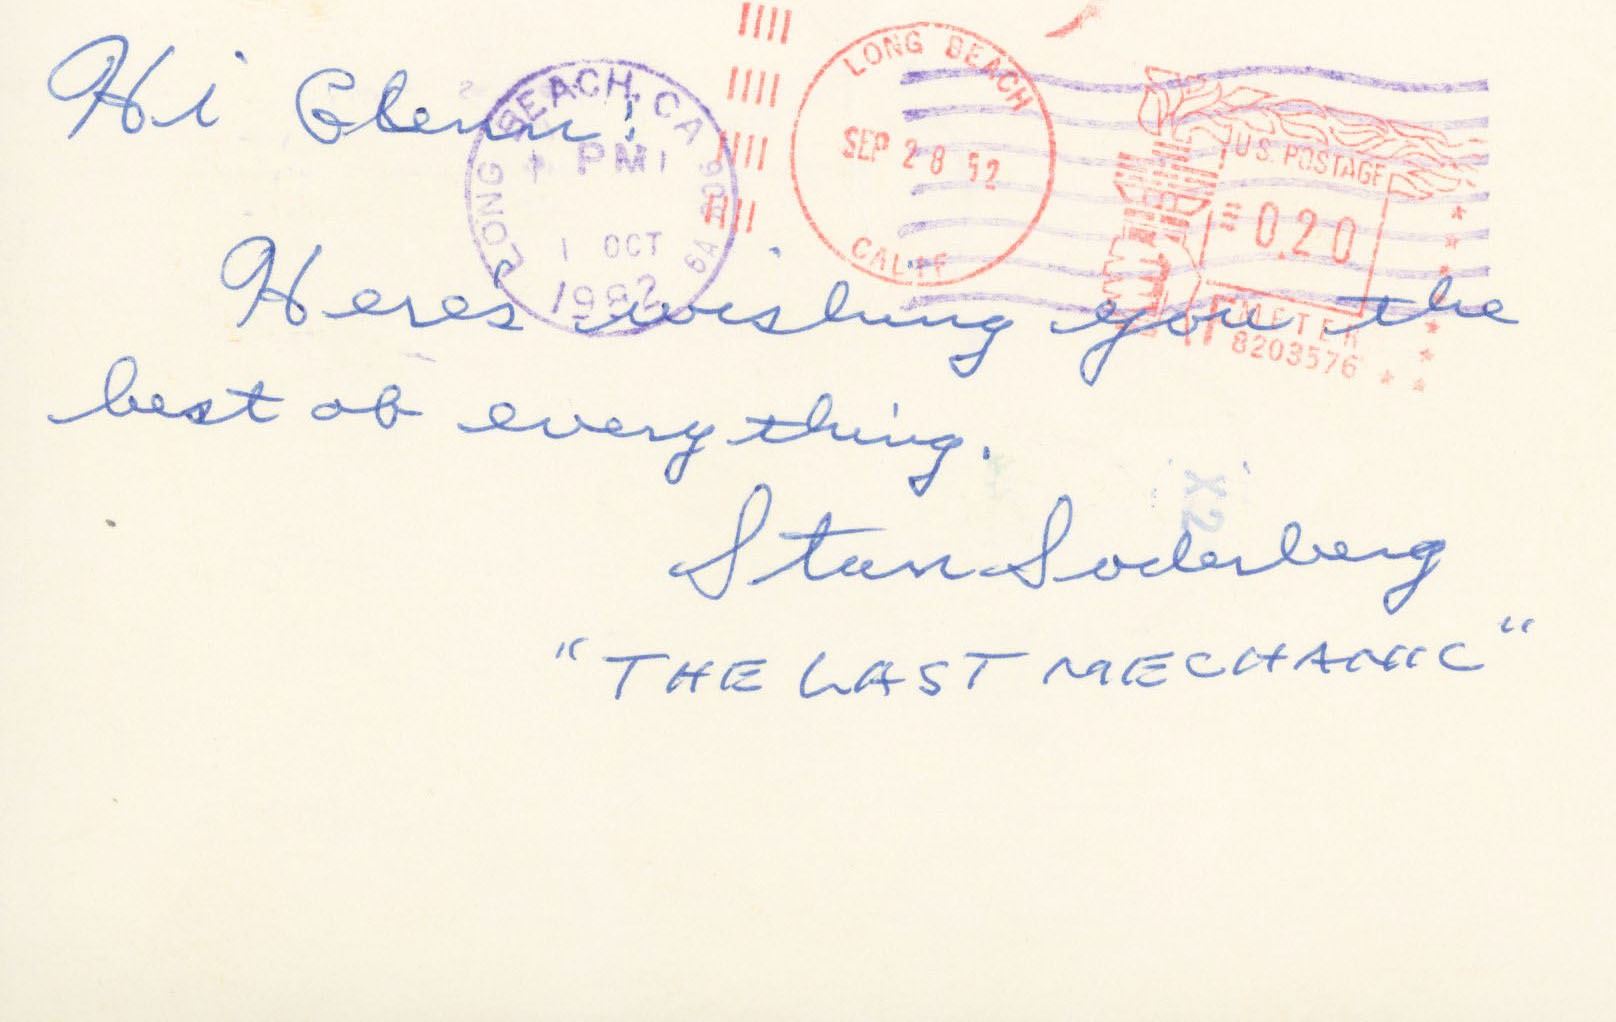 Hi Glenn!
LONG BEACH, CA
PM
1 OCT
1982
LONG BEACH
SEP 28 '82
CALIF
U.S. POSTAGE
0.20
METER
8203576
Here's wishing you the
best of everything.
X2
Stan Soderberg
"THE LAST MECHANIC"